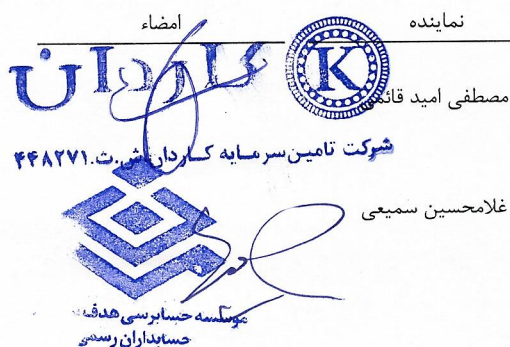 نماینده امضاء
کاردان
K
مصطفی امید قائمی
شرکت تامین سرمایه کاردان ش.ث. ۴۴۸۲۷۱
غلامحسین سمیعی
موسسه حسابرسی هدف
حسابداران رسمی